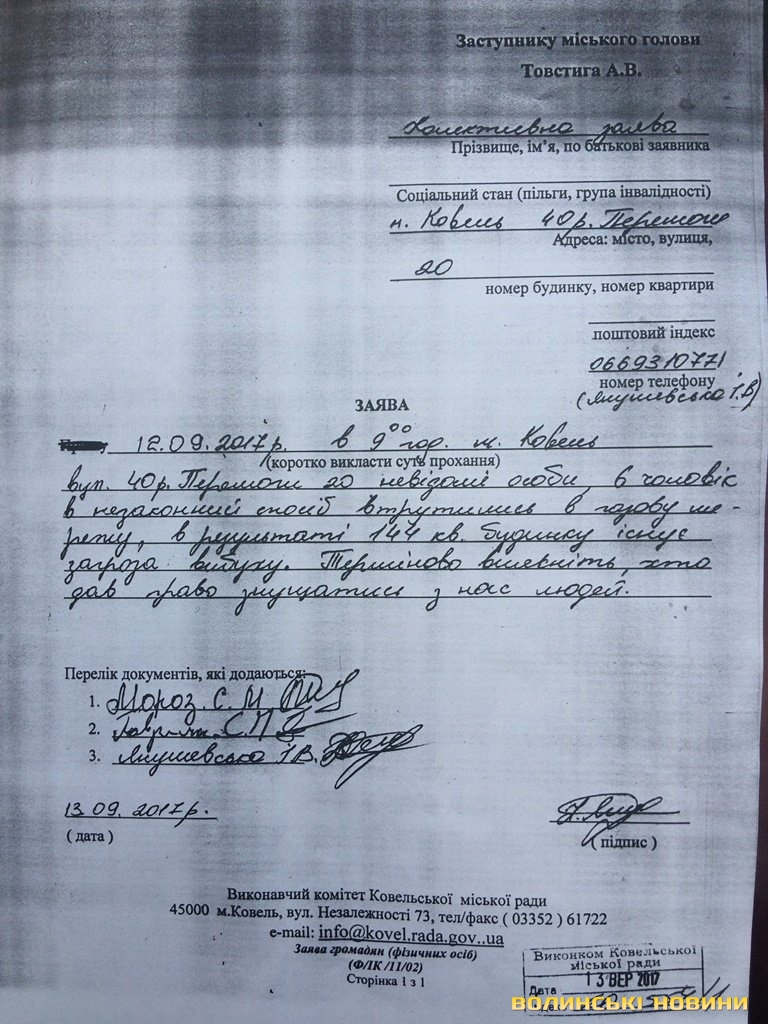 Заступнику міського голови
Товстига А.В.
Колективна заява
Прізвище, ім'я, по батькові заявника
Соціальний стан (пільги, група інвалідності)
м. Ковель 40р. Перемоги
Адреса: місто, вулиця,
20
номер будинку, номер квартири
поштовий індекс
0669310771
номер телефону
(Янушевська І.В)
ЗАЯВА
12.09.2017р. в 9⁰⁰ год. м. Ковель
(коротко викласти суть прохання)
вул. 40р. Перемоги 20 невідомі особи, 6 чоловік
в незаконний спосіб втрутились в газову ме-
режу, в результаті 144 кв. будинку існує
загроза вибуху. Терміново вияснить, хто
дав право знущатись з нас людей.
Перелік документів, які додаються:
1. Мороз С. М.
2. С.П
3. Янушевська І.В.
13 09. 2017р.
( дата )
( підпис )
Виконавчий комітет Ковельської міської ради
45000 м.Ковель, вул. Незалежності 73, тел/факс ( 03352 ) 61722
e-mail: info@kovel.rada.gov..ua
Заява громадян (фізичних осіб)
(Ф/ІК /11/02)
Сторінка 1 з 1
Виконком Ковельської
міської ради
Дата 13 ВЕР 2017
ВОЛИНСЬКІ НОВИНИ